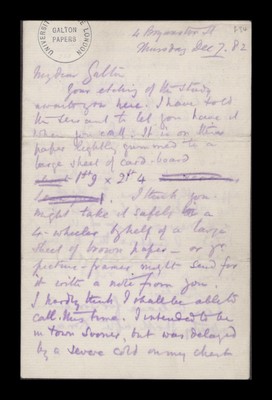 UNIVERSITY LONDON
GALTON
PAPERS
4 Bryanston St
Thursday Dec 7. 82
My dear Galton
Your etching of the study
awaits you here. I have told
the servant to let you have it
when you call. It is on thin
paper lightly gummed to a
large sheet of card-board
1ft 9 × 2ft 4
I think you
might take it safely in a
4-wheeler by help of a large
sheet of brown paper – or yr
picture-framer might send for
it with a note from you.
I hardly think I shall be able to
call this time. I intended to be
in town sooner, but was delayed
by a severe cold on my chest